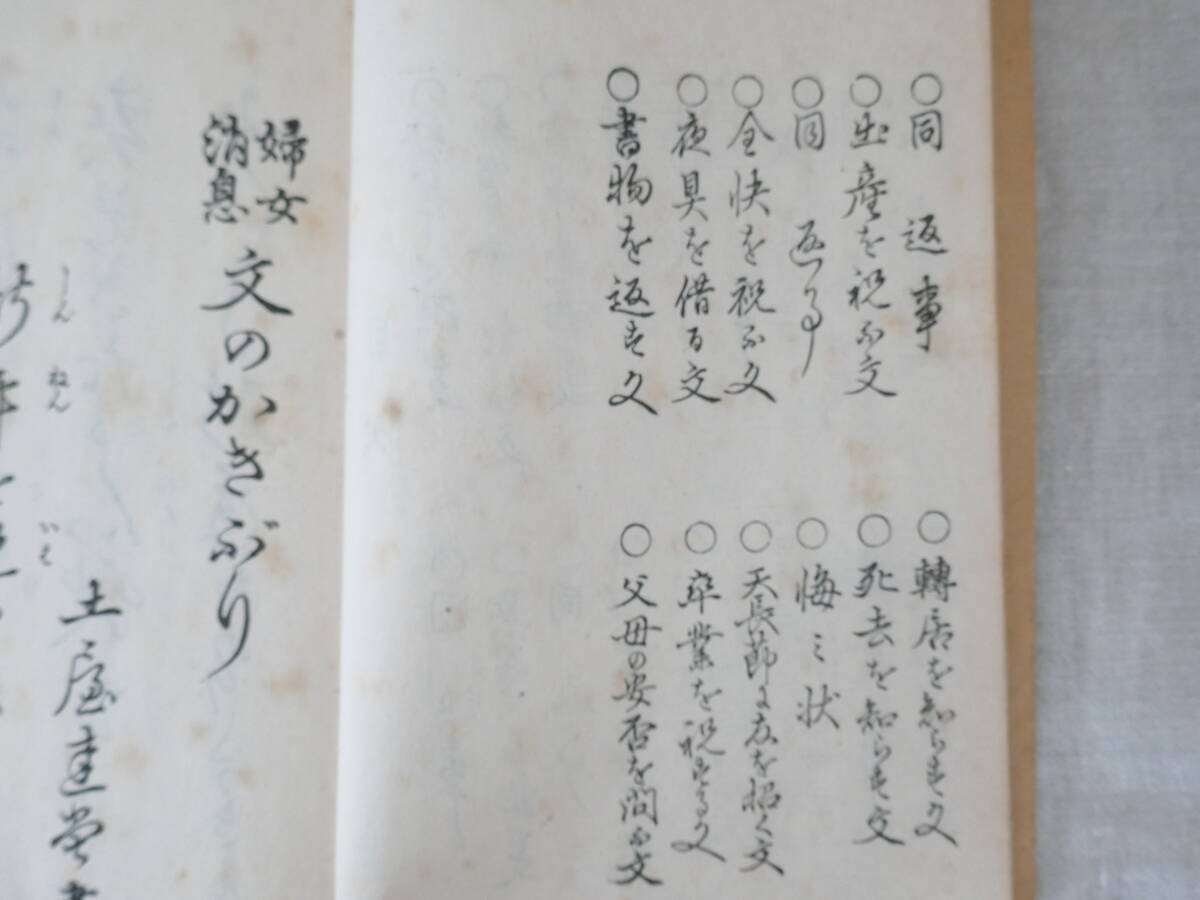 ○同 返事
○出産を祝ふ文
○同 返事
○全快を祝ふ文
○夜具を借る文
○書物を返す文
○轉居を知らす文
○死去を知らす文
○悔ミ状
○天長節に友を招く文
○卒業を祝する文
○父母の安否を問ふ文
婦女
消息
文のかきぶり
土屋達堂書
しん ねん いは
新年を